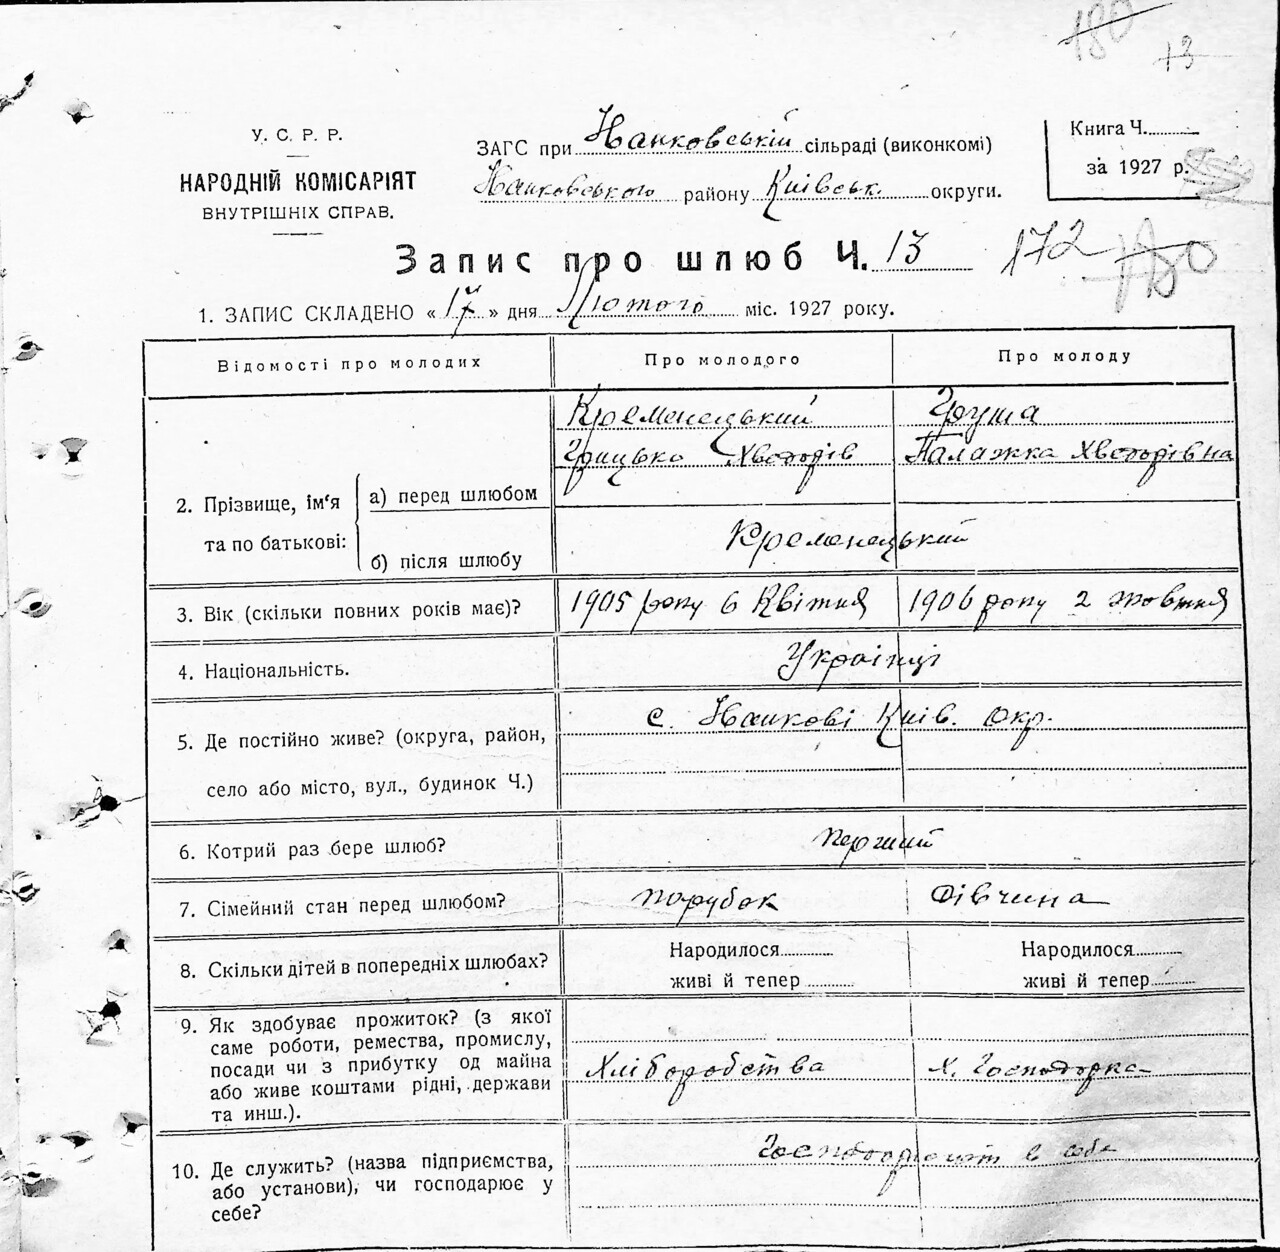 180
13
У. С. Р. Р.
НАРОДНІЙ КОМІСАРІЯТ
ВНУТРІШНІХ СПРАВ.
ЗАГС при сільраді (виконкомі)
району Київськ. округи.
Книга Ч.
за 1927 р.
Запис про шлюб Ч. 13
172 180
1. ЗАПИС СКЛАДЕНО « 17 » дня Лютого міс. 1927 року.
Відомості про молодих Про молодого Про молоду
Кременецький Груша
Грицько Хведорів Палажка Хведорівна
2. Прізвище, ім'я та по батькові:
а) перед шлюбом
б) після шлюбу
Кременецький
3. Вік (скільки повних років має)? 1905 року 6 Квітня 1906 року 2 жовтня
4. Національність. Українці
с. Київ. Окр.
5. Де постійно живе? (округа, район,
село або місто, вул., будинок Ч.)
6. Котрий раз бере шлюб? перший
7. Сімейний стан перед шлюбом? парубок Дівчина
8. Скільки дітей в попередніх шлюбах?
Народилося Народилося
живі й тепер живі й тепер
9. Як здобуває прожиток? (з якої
саме роботи, ремества, промислу,
посади чи з прибутку од майна
або живе коштами рідні, держави
та инш.).
Хліборобства Х. Господорка
10. Де служить? (назва підприємства,
або установи), чи господарює у
себе?
в себе